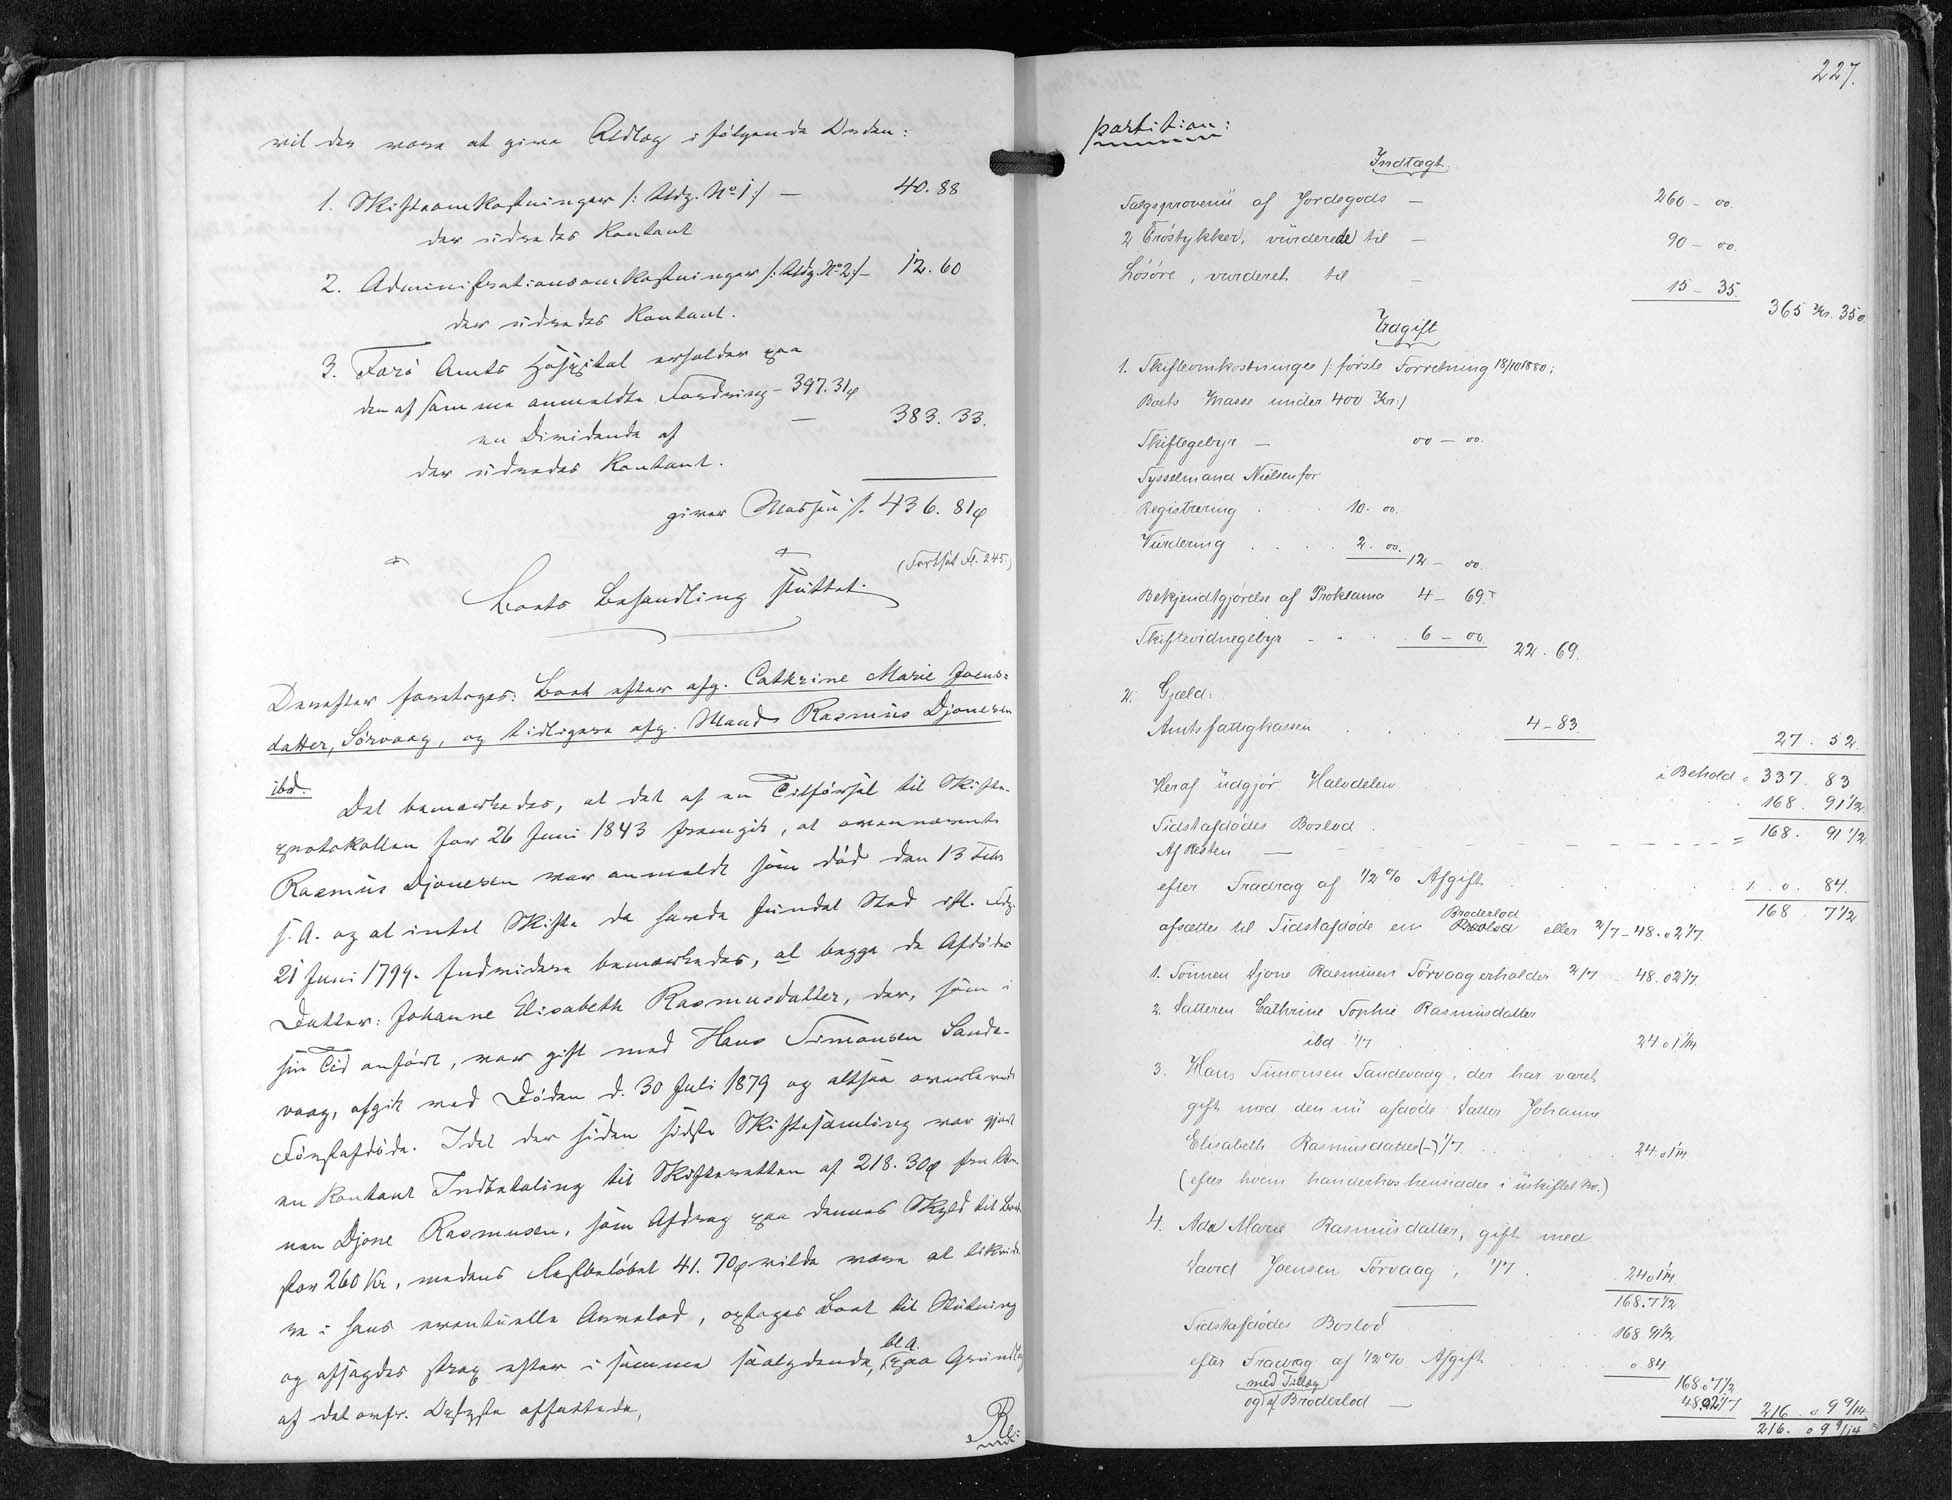 vil der være at give Udlæg i følgende Orden:
1. Skifteomkostninger /: Udg. No 1 :/ — 40. 88
der udredes kontant
2. Administrationsomkostninger /: Udg. No 2 :/ — 12. 60
der udredes kontant.
3. Færø Amts Hospital erholder paa
den af samme anmeldte Fordring — 397. 31
en Dividende af — 383. 33.
der udredes kontant.
giver Massen 436. 81
(Fortsat Fl. 245.)
Boets Behandling sluttet.
Derefter foretoges: Boet efter afg. Cathrine Marie Joens-
datter, Sørvaag, og tidligere afg. Mand Rasmus Djonesen
ibd.
Det bemærkedes, at det af en Tilførsel til Skifte-
protokollen for 26 Juni 1843 fremgik, at ovennævnte
Rasmus Djonesen var anmeldt som død den 13 Febr
s. A. og at intet Skifte da havde fundet Sted ifl. Fdg.
21 Juni 1799. Endvidere bemærkedes, at begge de Afdødes
Datter: Johanne Elisabeth Rasmusdatter, der, som i
sin Tid anført, var gift med Hans Simonsen Sande-
vaag, afgik ved Døden d. 30 Juli 1879 og altsaa overlevede
Førstafdøde. Idet der siden sidste Skiftesamling var gjort
en kontant Indbetaling til Skifteretten af 218. 30 fra Søn-
nen Djone Rasmusen, som Afdrag paa dennes Skyld til Boet
stor 260 Kr, medens Restbeløbet 41. 70 vilde være at likvide-
re i hans eventuelle Arvelod, optoges Boet til Slutning
og afsagdes strax efter i samme saalydende, bl. a. paa Grundlag
af det ovfr. Opførte affattede,
Re-
227.
partition:
Indtægt
Salgsprovenü af Jordegods — 260 — 00.
2 Trøstykker, vurderede til — 90 — 00.
Løsøre, vurderet til — 15 — 35.
365 Kr. 35
Udgift
1. Skifteomkostninger /: første Forretning 18/10 1880;
Boets Masse under 400 Kr :/
Skiftegebyr — 00 — 00.
Sysselmand Nielsen for
Registrering . . 10. 00.
Vurdering . . . . 2. 00. 12 — 00.
Bekjendtgjørelse af Proklama 4 — 69.
Skiftevidnegebyr - . . . 6 — 00 22. 69.
2. Gjæld:
Amtsfattigkassen . . . . 4 — 83.
27. 52.
i Behold = 337. 83
Heraf udgjør Halvdelen . . 168. 91 1/2.
Sidstafdødes Boslod . = 168. 91 1/2
Af Resten —
efter Fradrag af 1/2 % Afgift . . 0. 84.
168. 7 1/2
afsættes til Sidstafdøde en Broderlod eller 2/7 — 48. 02 1/7.
1. Sønnen Djone Rasmusen Sørvaag erholder 2/7 48. 02 1/7.
2. Datteren Cathrine Sophie Rasmusdatter
ibd 1/7 . . 24. 01 1/14
3. Hans Simonsen Sandevaag, der har været
gift med den nu afdøde Datter Johanne
Elisabeth Rasmusdatter (-) 1/7 . . 24. 01 1/14
(efter hvem han derhos hensidder i uskiftet Bo.)
4. Ada Marie Rasmusdatter, gift med
David Joensen Sørvaag, 1/7 . 24. 01 1/14
168. 7 1/2
Sidstafdødes Boslod . . 168 91 1/2
efter Fradrag af 1/2 % Afgift . . 0 84
168. 07 1/2
med Tillæg
og af Broderlod — 48. 02 1/7 216. 09 9/14
216. 09 9/14